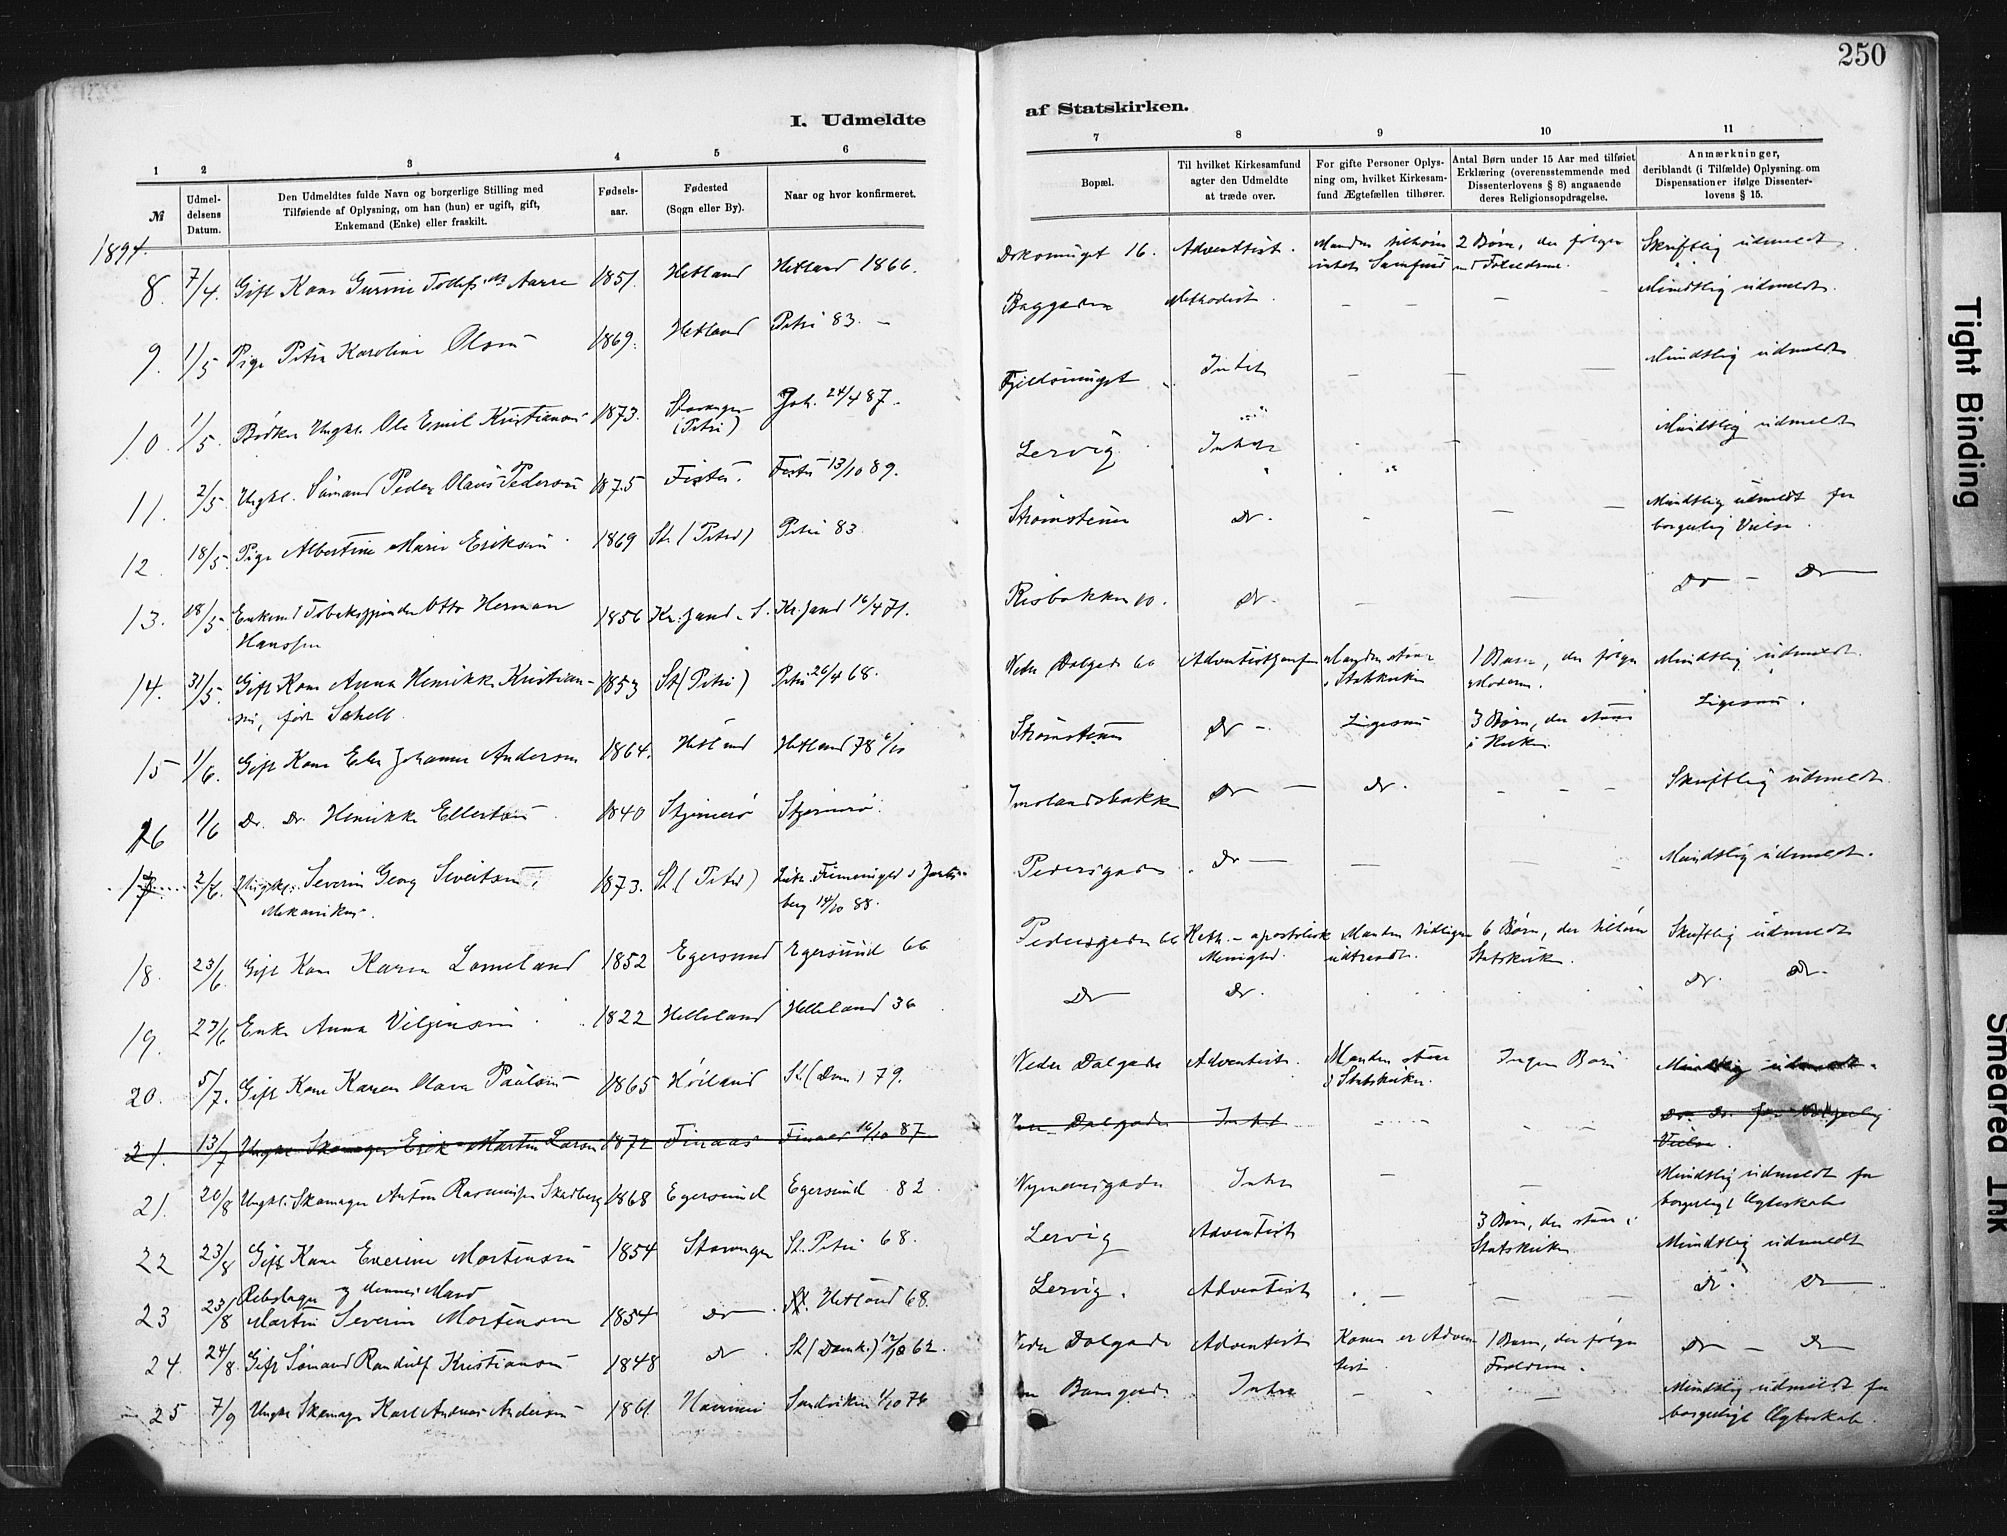 250
I. Udmeldte af Statskirken.
1 2 3 4 5 6 7 8 9 10 11
№
Udmeldelsens Datum.
Den Udmeldtes fulde Navn og borgerlige Stilling med Tilføiende af Oplysning, om han (hun) er ugift, gift, Enkemand (Enke) eller fraskilt.
Fødselsaar.
Fødested (Sogn eller By).
Naar og hvor konfirmeret.
Bopæl.
Til hvilket Kirkesamfund agter den Udmeldte at træde over.
For gifte Personer Oplysning om, hvilket Kirkesamfund Ægtefællen tilhører.
Antal Børn under 15 Aar med tilføiet Erklæring (overensstemmende med Dissenterlovens § 8) angaaende deres Religionsopdragelse.
Anmærkninger, deriblandt (i Tilfælde) Oplysning om Dispensationer ifølge Dissenterlovens § 15.
1894.
8. 7/4. Gift Kone Gurine Aarre 1851. Hetland Hetland 1866. 16. Adventist. Manden tilhører intet Samfund 2 Børn, der følger Skriftlig udmeldt
9. 1/5 Pige Petra Karoline Olsen 1869. Hetland Petri 83. – Methodist. – – – Mundtlig udmeldt.
10. 1/5. Bødker Ungkl. Ole Emil Kristiansen 1873. Stavanger (Petri) Joh. 24/4 87. Intet – – Mundtlig udmeldt
11. 2/5. Ungkl. Sømand Peder Olaus Pedersen 1875 Fister. Fister 13/10 89. Lervig Intet Mundtlig udmeldt
12. 18/5. Pige Albertine Marie Eriksen 1869 St. (Petri) Petri 83. Strømsteen Do. – – – Mundtlig udmeldt for
borgerlig Vielse.
13. 18/5. Enkem. Otto Herman 1856 Kr.sand S. Kr.sand 16/4 71. Risbakken 10. Do. – – Do – Do
Hanssen
14. 31/5. Gift Kone Anna Henrikke Kristian- 1853 St (Petri) Petri 26/4 68. Nedre Dalgade 66 Manden staar 1 Barn, der følger Mundtlig udmeldt.
sen, født i Statskirken Moderen.
15 1/6. Gift Kone Johanne Andersen 1864. Hetland Hetland 78 Strømsteen Do – Ligesaa 3 Børn, der staar Ligesaa.
i Kirken.
16 1/6 Do. Do. Henrikke Ellertsen 1840 Stjernerø Stjernerø. Do – Do. – – – Skriftlig udmeldt
17. 2/6. Ungkl. Severin Georg 1873. St. (Petri) Pedersgaden Do – – – Mundtlig udmeldt.
Mekanikus. 14/10 88.
18. 23/6. Gift Kone Karen Lomeland 1852 Egersund Egersund 66 Pedersgaden 66 Kath. – apostolisk Manden tidligere 6 Børn, der tilhører Skriftlig udmeldt
Menighed. udtraadt. Statskirken.
19. 23/6 Enke Anna 1822 Helleland Helleland 36 Do Do. Do. Do.
20. 5/7. Gift Kone Karen Olava Paulsen 1865 Høiland St. (Dom.) 79. Nedre Dalgade Adventist. Manden staar Ingen Børn Mundtlig udmeldt.
i Statskirken.
21. 13/7 Ungkl. Skomager Erik Martin Larsen 1872 Finaas Finaas 16/10 87 Dalgade Intet – – Do. Do. for borgerlig
Vielse.
21. 20/8 Ungkl. Skomager Anton Rasmussen Skadberg 1868 Egersund Egersund 82 Intet – – Mundtlig udmeldt for
borgerligt Ægteskab
22 23/8 Gift Kone Everine Mortensen 1854 Stavanger St. Petri 68. Lervig Adventist 3 Børn, der staar i Mundtlig udmeldt
Statskirken
Rebslager og hennes Mand
23 23/8 Martin Severin Mortensen 1854 Do – Hetland 68. Lervig. Adventist – – – Do. Do –
24. 24/8. Gift Sømand Randulf Kristiansen 1848 Do St (Domk.) 62. Nedre Dalgade Adventist Konen er Adven- 1 Barn, der følger Do – Do
tist. Forældrene.
25 7/9 Ungkl. Skomager Karl Andreas Andersen 1861. Sandviken 1/10 76 Intet – – – Mundtlig udmeldt for
borgerligt Ægteskab.
Tight Binding
Smeared Ink